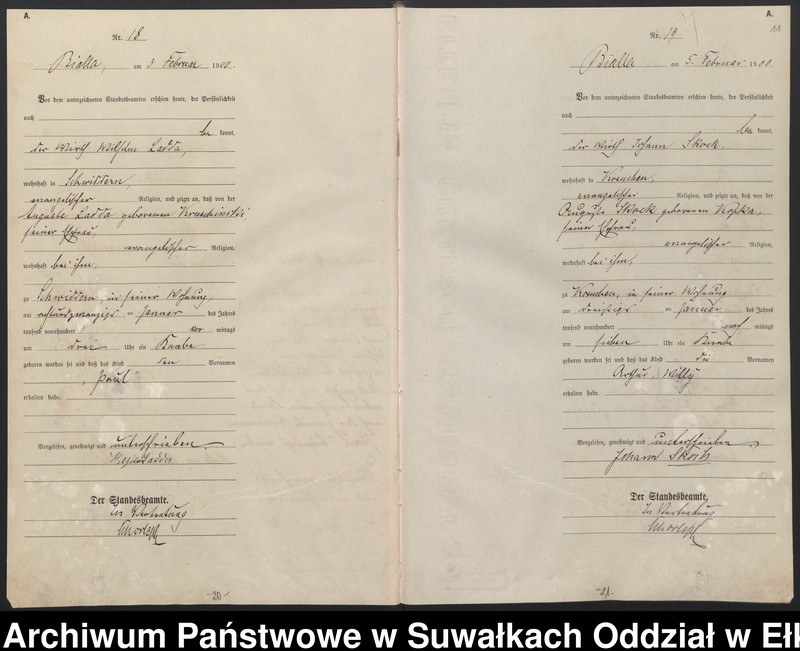 A.
Nr. 18
Bialla, am 3. Februar 1900.
Vor dem unterzeichneten Standesbeamten erschien heute, der Persönlichkeit
nach
be kannt,
der Wirth Wilhelm Ladda,
wohnhaft in Schwiddern,
evangelischer Religion, und zeigte an, daß von der
Auguste Ladda geborenen Kruschinski
seiner Ehefrau,
evangelischer Religion,
wohnhaft bei ihm,
zu Schwiddern, in seiner Wohnung,
am achtundzwanzigs ten Januar des Jahres
tausend neunhundert vor mittags
um drei Uhr ein Knabe
geboren worden sei und daß das Kind den Vornamen
Paul
erhalten habe.
Vorgelesen, genehmigt und unterschrieben
Ladda
Der Standesbeamte.
In Vertretung
-20-
A.
11
Nr. 19
Bialla am 5. Februar 1900.
Vor dem unterzeichneten Standesbeamten erschien heute, der Persönlichkeit
nach
be kannt,
der Wirth Johann Skock,
wohnhaft in
evangelischer Religion, und zeigte an, daß von der
Auguste Skock geborenen Kopka,
seiner Ehefrau,
evangelischer Religion,
wohnhaft bei ihm,
zu in seiner Wohnung
am dreißigs ten Januar des Jahres
tausend neunhundert nach mittags
um sieben Uhr ein Knabe
geboren worden sei und daß das Kind die Vornamen
Arthur, Willy
erhalten habe.
Vorgelesen, genehmigt und unterschrieben
Johann Skock
Der Standesbeamte,
In Vertretung
-21-
Archiwum Państwowe w Suwałkach Oddział w Ełk